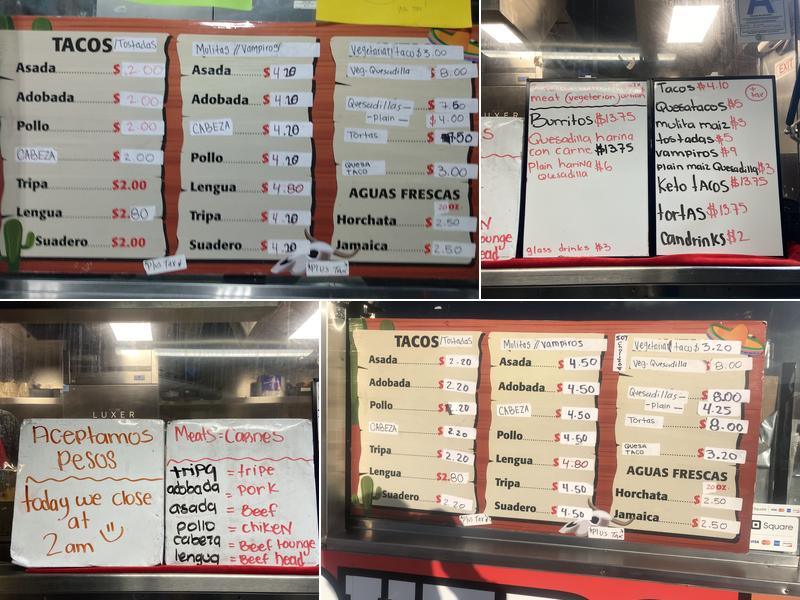 TACOS/Tostadas
Asada $2.00
Adobada $2.00
Pollo $2.00
CABEZA $2.00
Tripa $2.00
Lengua $2.80
Suadero $2.00
Plus Tax
Mulitas//Vampiros
Asada $4.20
Adobada $4.20
CABEZA $4.20
Pollo $4.20
Lengua $4.80
Tripa $4.20
Suadero $4.20
PLUS TAX
Vegetarian taco $3.00
Veg-Quesadilla $8.00
Quesadillas— $7.50
—plain— $4.00
Tortas $7.50
QUESA TACO $3.00
AGUAS FRESCAS
20 OZ
Horchata $2.50
Jamaica $2.50
A
EXIT
LUXER
meat (vegeterion
Burritos $13.75
Quesadilla harina
con carne $13.75
plain harina $6
Quesadilla
glass drinks $3
Tacos $4.10
+ tax
Quesatacos $5
mulita maiz $3
tostadas $5
vampiros $9
plain maiz Quesadilla $3
Keto tacos $13.75
tortas $13.75
Candrinks $2
ounge
ead
LUXER
Aceptamos
Pesos
today we close
at
2am
Meats=Carnes
tripa = tripe
adobada = Pork
asada = Beef
pollo = chiken
cabeza = Beef tounge
lengua = Beef head
TACOS/Tostadas
Asada $2.20
Adobada $2.20
Pollo $2.20
CABEZA $2.20
Tripa $2.20
Lengua $2.80
Suadero $2.20
Plus Tax
Mulitas//Vampiros
Asada $4.50
Adobada $4.50
CABEZA $4.50
Pollo $4.50
Lengua $4.80
Tripa $4.50
Suadero $4.50
PLUS TAX
Vegetarian taco $3.20
Veg-Quesadilla $8.00
Quesadillas— $8.00
—plain— 4.25
Tortas $8.00
QUESA TACO $3.20
AGUAS FRESCAS
20 OZ
Horchata $2.50
Jamaica $2.50
Square